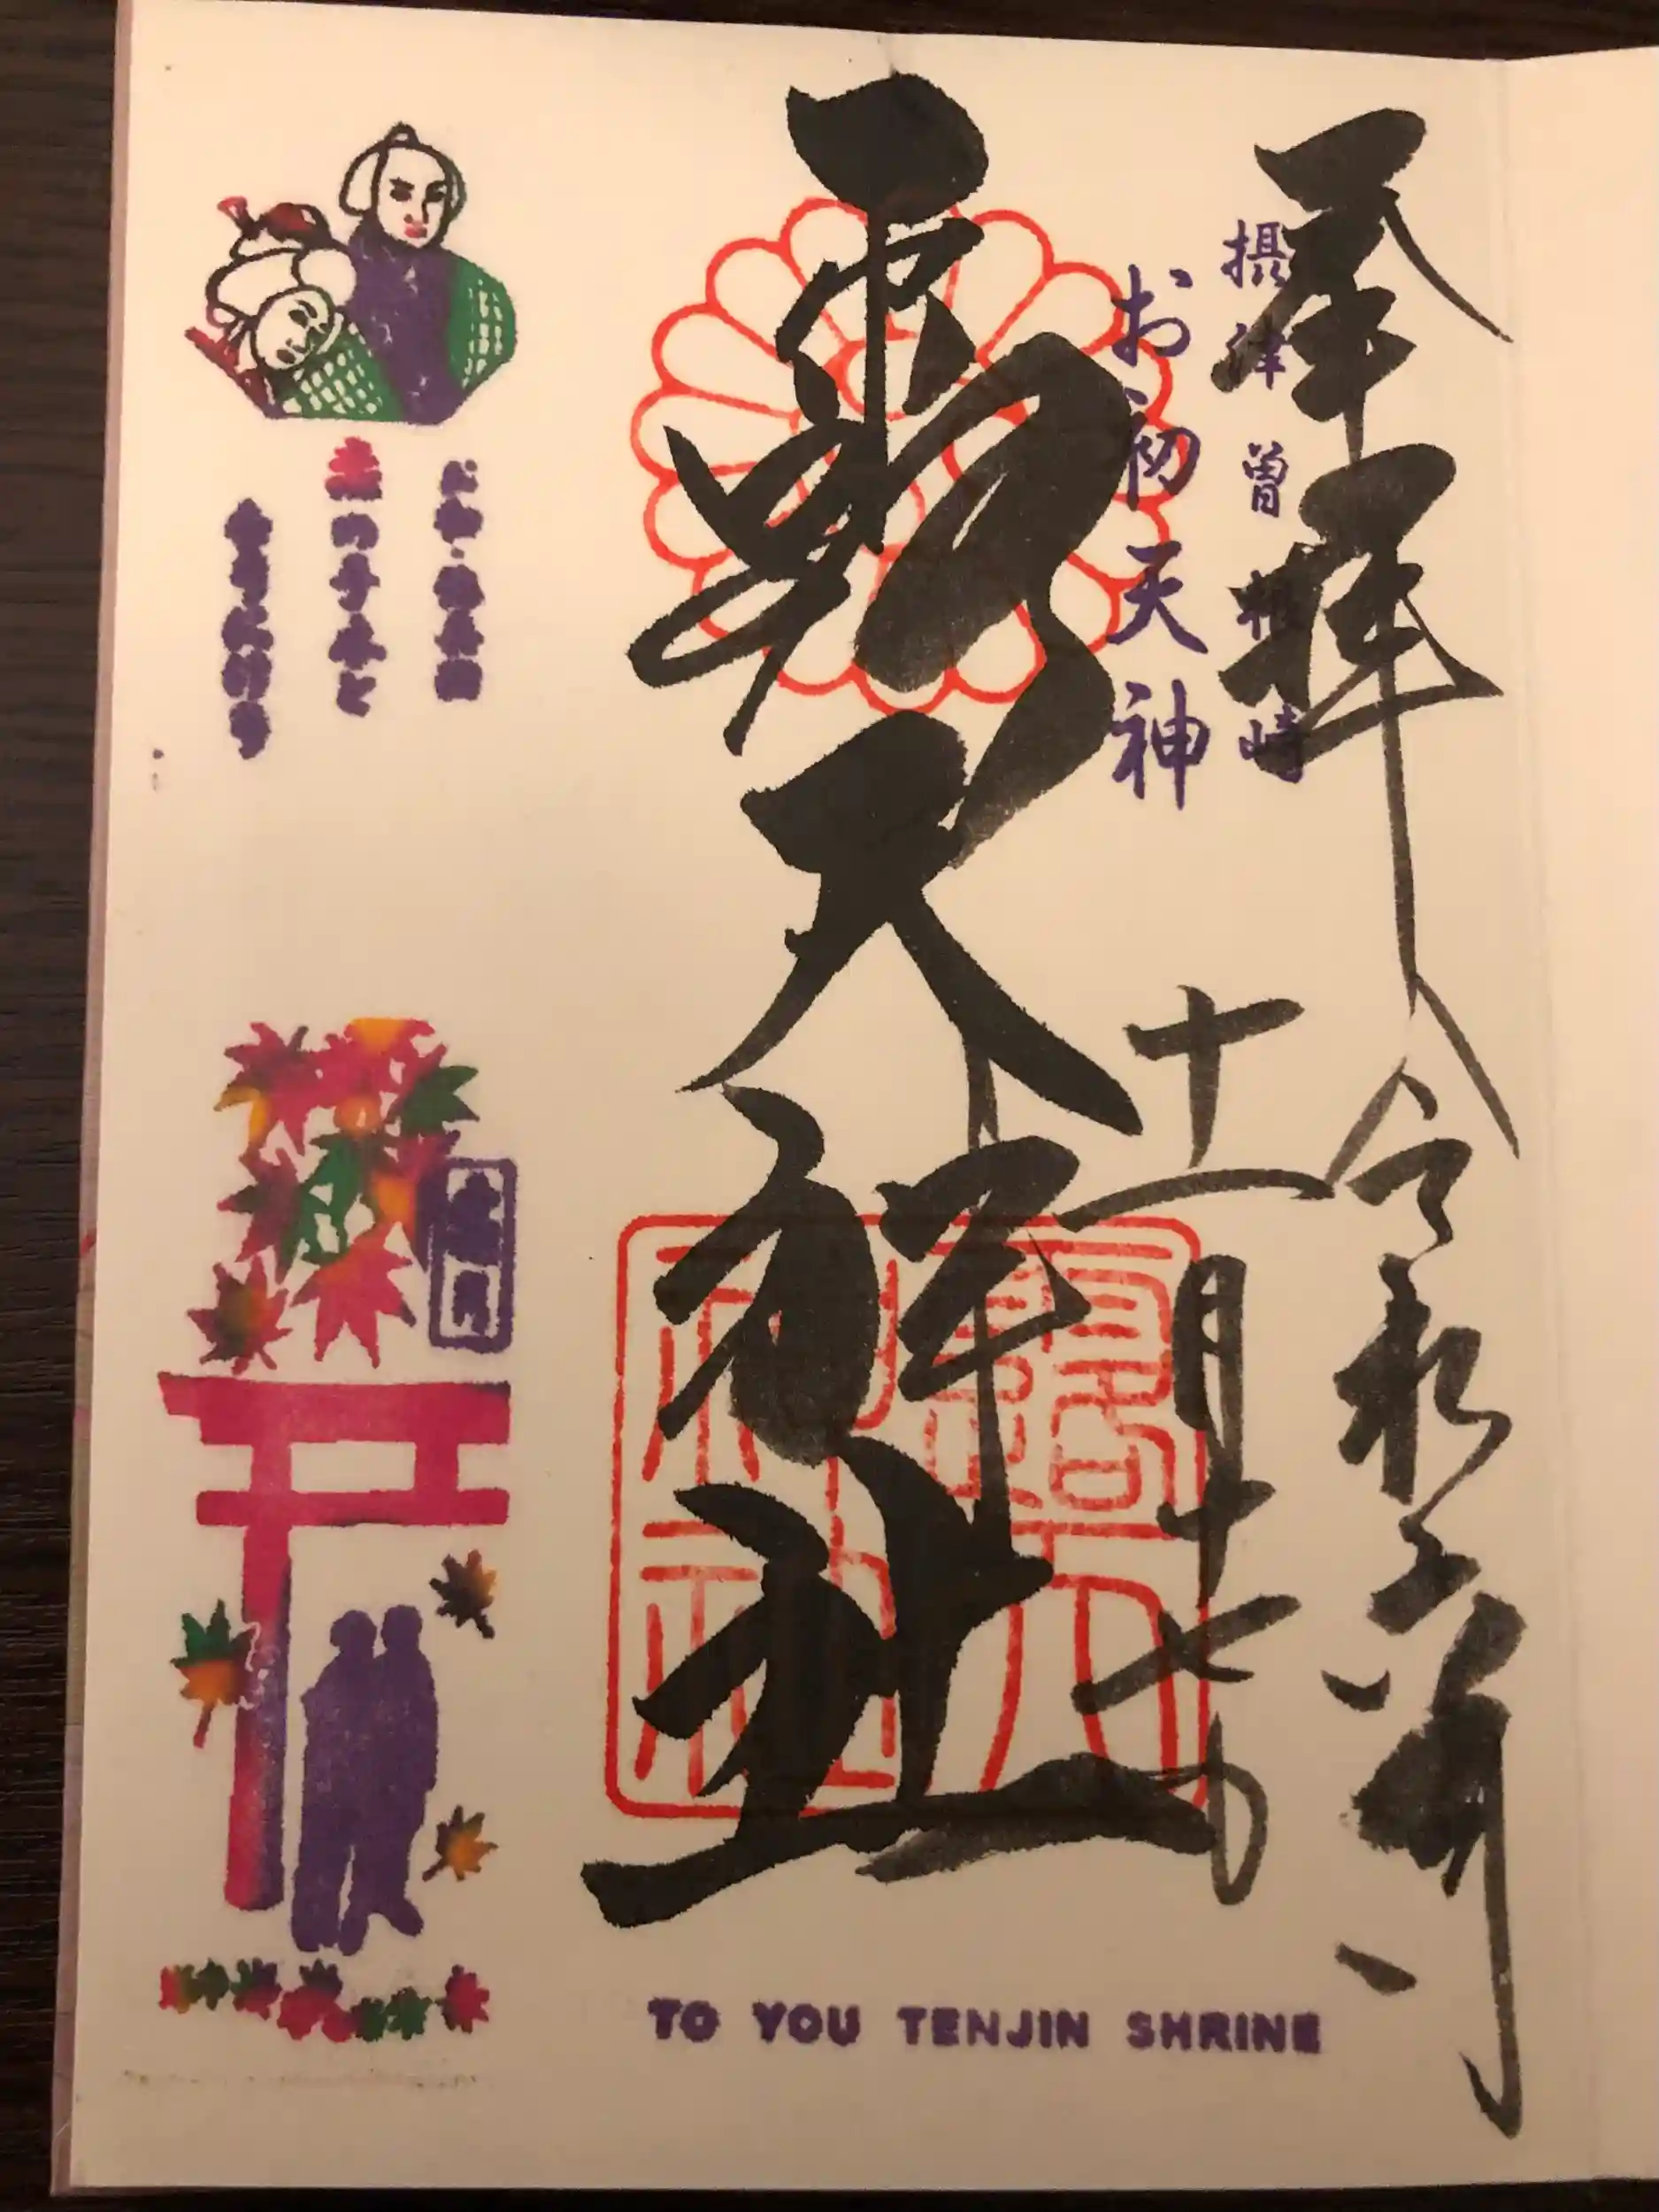 奉拝
摂津曽根崎
お初天神
令和六年
十一月十七日
露天神社
露天神社
TO YOU TENJIN SHRINE